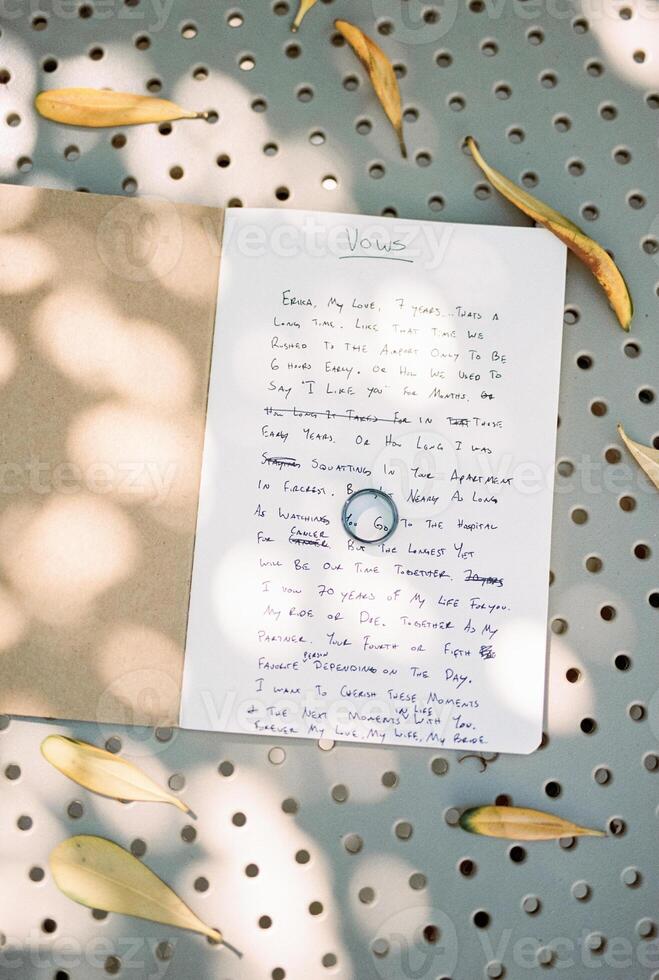 Vows
Erika, My Love, 7 years...thats a
long time. Like that time we
rushed to the airport only to be
6 hours early. Or how we used to
say "I like you" for months. or
How long it takes for in that those
early years. Or how long I was
staying squatting in your apartment
in Fircrest. Nearly as long
as watching you go to the hospital
for cancer cancer. But the longest yet
will be our time together. 70 years
I vow 70 years of my life for you.
My ride or die. Together as my
partner. Your fourth or fifth
favorite person depending on the day.
I want to cherish these moments
+ the next moments in life with you.
Forever my love, my wife, my bride
Vecteezy